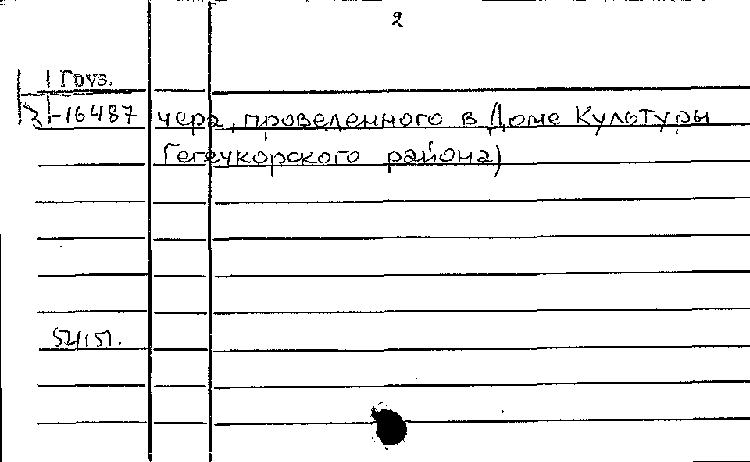 2
Груз.
-16487 чера, проведенного в Доме Культуры
Гегечкорского района)